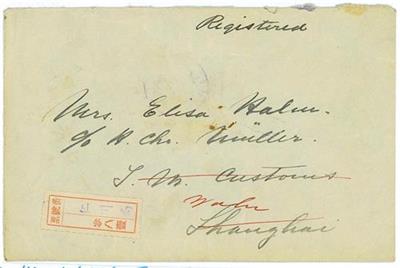 Registered
Mrs. Elisa Halm.
c/o H. Chr. Müller.
I. M. Customs
Shanghai